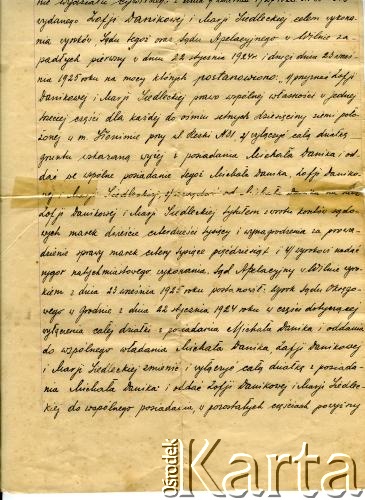 wydanego Zofji Danikowej i Marji Siedleckiej celem wykona-
nia wyroków, Sądu tegoż oraz Sądu Apelacyjnego w Wilnie za-
padłych pierwszy w dniu 22 stycznia 1924r i drugi dnia 23 wrześ-
nia 1925 roku na mocy których postanowiono: przyznać Zofji
Danikowej i Marji Siedleckiej prawo wspólnej własności w jednej
trzeciej części dla każdej do ośmiu setnych dziesięciny ziemi poło-
żonej w m. Słonimie przy ul. i wyłączyć całą działkę
gruntu wskazaną wyżej z posiadania Michała Danika i od-
dać we wspólne posiadanie tegoż Michała Danika, Zofji Daniko-
wej i Marji Siedleckiej, od Michała Danika na rzecz
Zofji Danikowej i Marji Siedleckiej tytułem zwrotu kosztów sądo-
wych marek dzieścia czterdzieści tysięcy i wynagrodzenia za prowa-
dzenie sprawy marek cztery tysiące pięćdziesiąt i 4/ wyrokowi nadać
rygor natychmiastowego wykonania. Sąd Apelacyjny w Wilnie wyro-
kiem z dnia 23 września 1925 roku postanowił: wyrok Sądu Okręgo-
wego w Grodnie z dnia 22 stycznia 1924 roku w części dotyczącej
wyłączenia całej działki z posiadania Michała Danika i oddania
do wspólnego władania Michała Danika, Zofji Danikowej
i Marji Siedleckiej zmienić i wyłączyć całą działkę z posiada-
nia Michała Danika i oddać Zofji Danikowej i Marji Siedlec-
kiej do wspólnego posiadania, w pozostałych częściach powyższy
Ośrodek
Karta